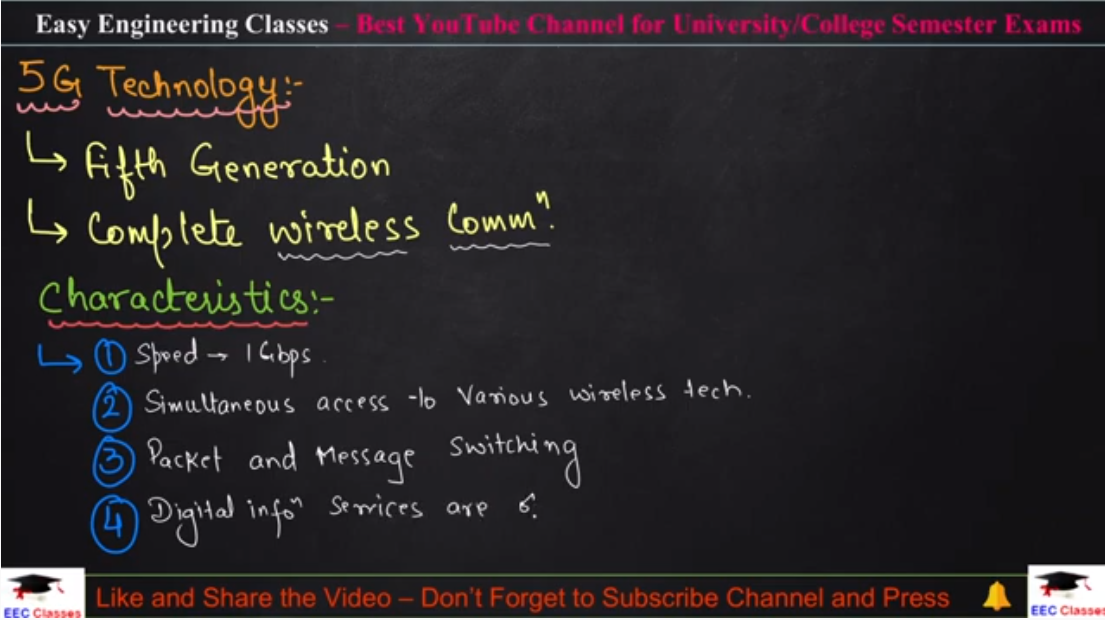 Easy Engineering Classes – Best YouTube Channel for University/College Semester Exams
5G Technology:-
↳ Fifth Generation
↳ Complete wireless Commⁿ.
Characteristics:-
↳ ① Speed → 1 Gbps.
② Simultaneous access to Various wireless tech.
③ Packet and Message Switching
④ Digital infoⁿ Services are
EEC Classes
Like and Share the Video – Don't Forget to Subscribe Channel and Press
EEC Classes